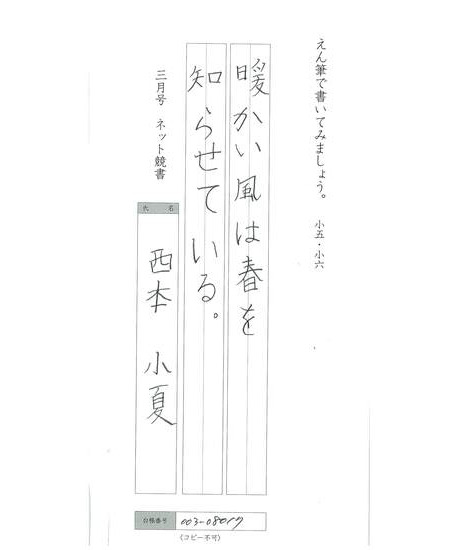 えん筆で書いてみましょう。 小五・小六
暖かい風は春を
知らせている。
三月号 ネット競書
氏 名
西本 小夏
台帳番号 003-08017
(コピー不可)